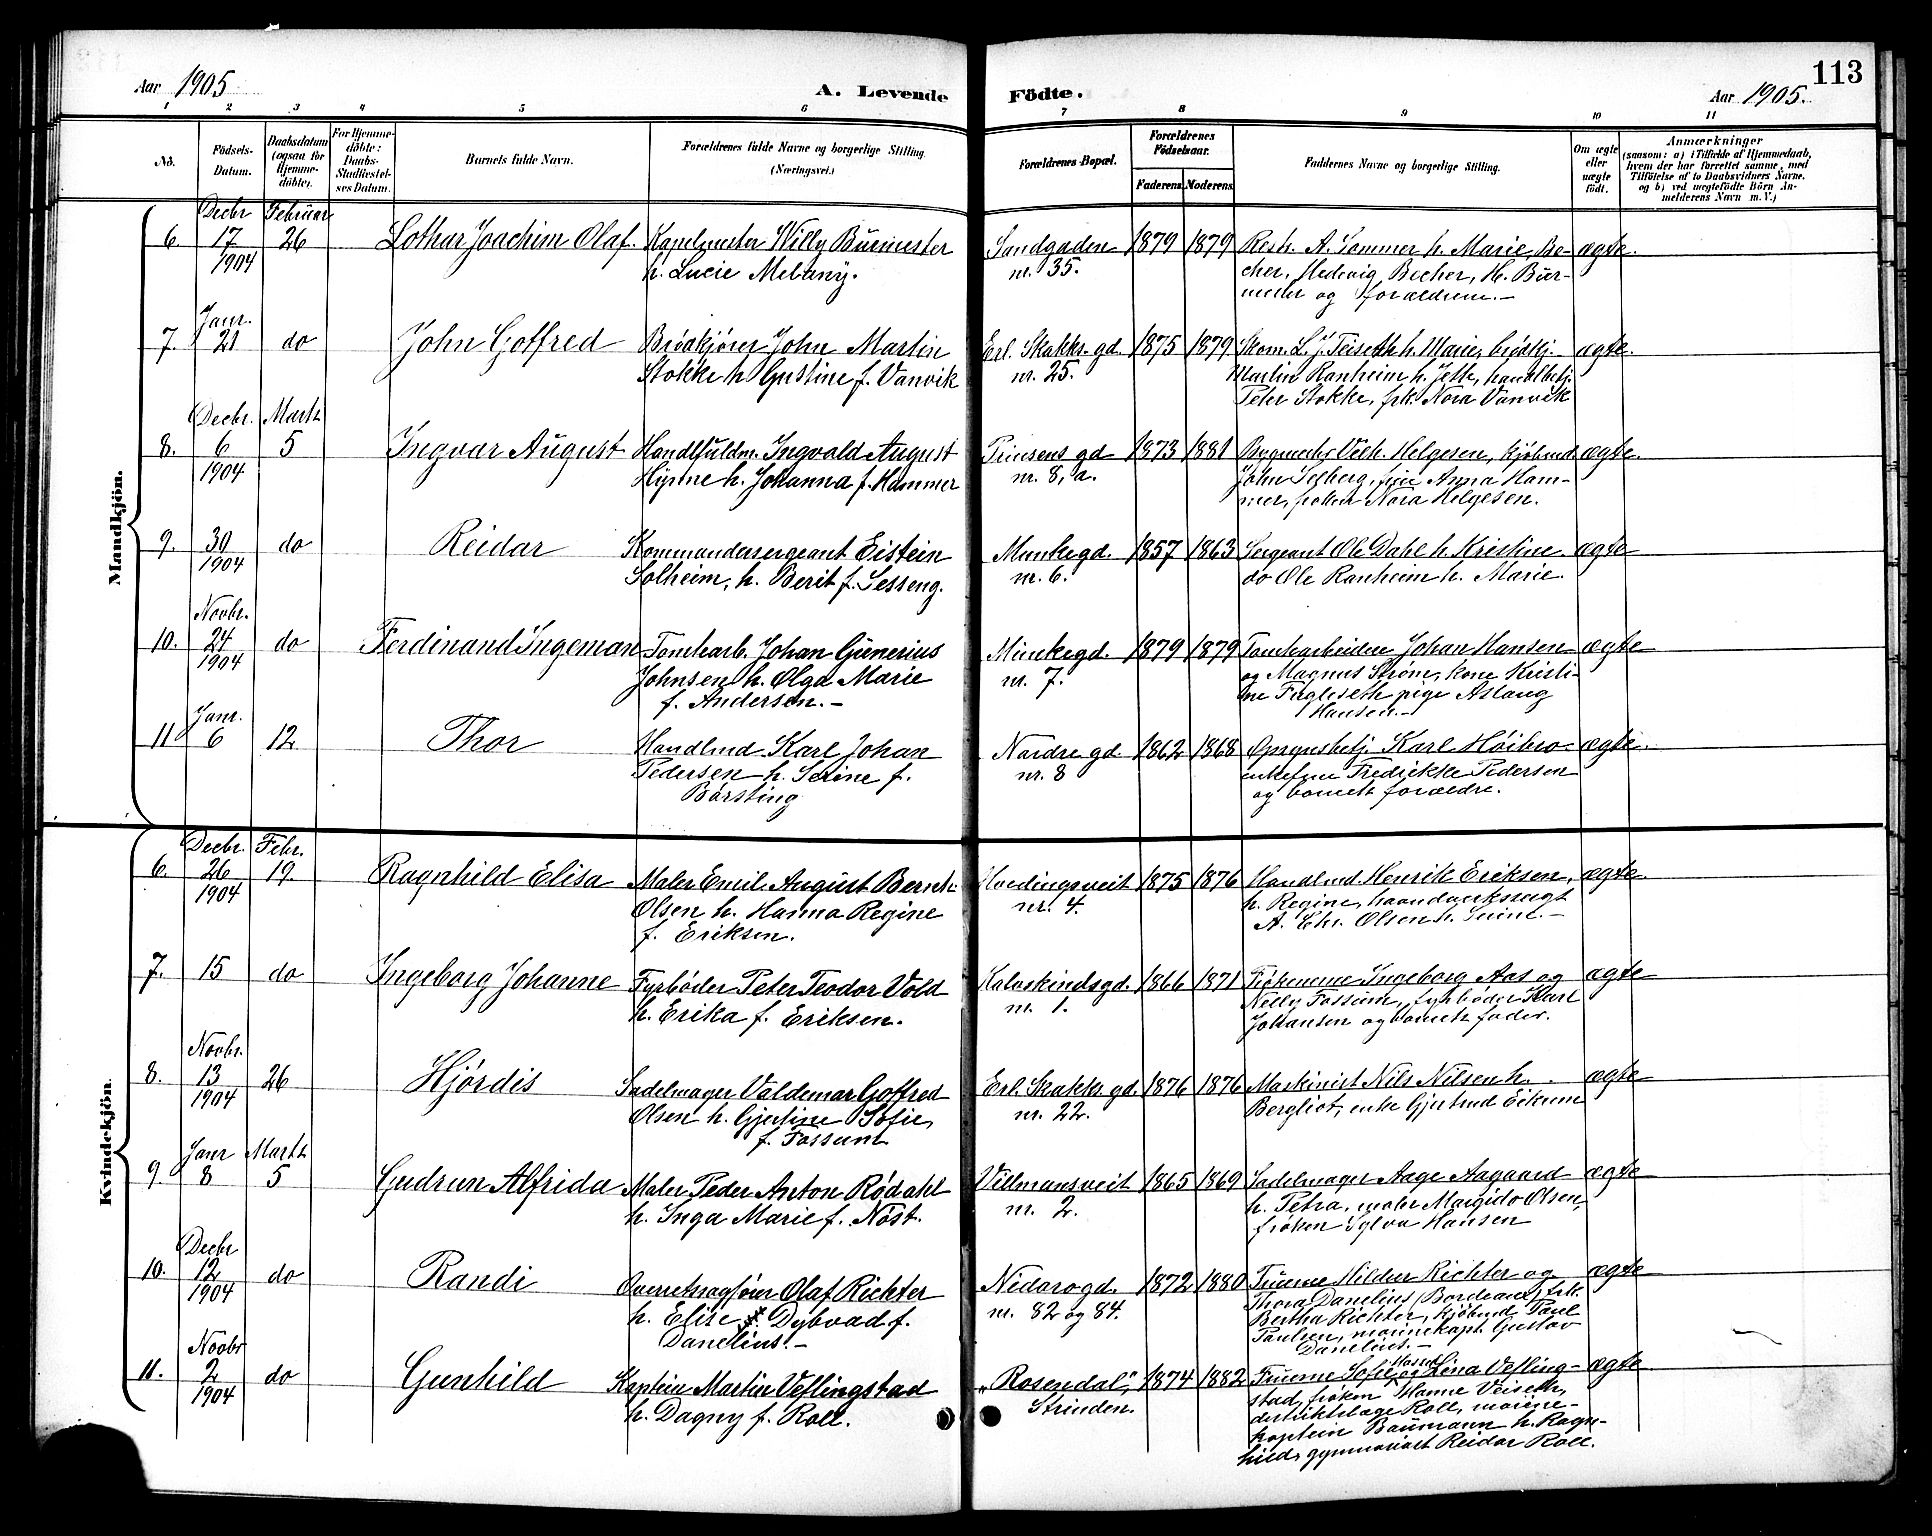 113
Aar 1905
A. Levende Födte.
Aar 1905.
1 2 3 4 5 6 7 8 9 10 11
No.
Födsels-
Datum.
Daabsdatum
(ogsaa for
Hjemme-
döbte).
For Hjemme-
döbte:
Daabs-
Stadfæstel-
ses Datum.
Barnets fulde Navn.
Forældrenes fulde Navne og borgerlige Stilling
(Næringsvei.)
Forældrenes Bopæl.
Forældrenes
Födselsaar.
Faderens Moderens
Faddernes Navne og borgerlige Stilling.
Om ægte
eller
uægte
födt.
Anmærkninger
(saasom: a) i Tilfælde af Hjemmedaab,
hvem der har forrettet samme, med
Tilföielse af to Daabsvidners Navne,
og b) ved uægtefödte Börn An-
melderens Navn m. V.)
Mandkjön.
6. Decbr 17 1904 Februar 26 Lothar Joachim Olaf. Kapelmester Willy Burmester
h. Lucie Melany.
Sandgaden
nr. 35.
1879 1879 Restr. A. Sommer h. Marie, Be-
cher, Hedevig Becher, H. Bur-
mester og forældrene.-
ægte.
7. Janr. 21 do John Gotfred Brødkjører John Martin
Stokke h. Gustine f. Vanvik
Erl. Skakks. gd.
nr. 25.
1875 1879 Skom. L. J. Teiseth h. Marie, brødkj.
Martin Ranheim h. Jette, handlbetj.
Peter Stokke, frk. Nora Vanvik
ægte.
8. Decbr. 6 1904 Marts 5 Ingvar August Handlfuldm. Ingvold August
Hymne h. Johanna f. Hammer
Prinsens gd
nr. 8, a.
1873 1881 Bygmester Vilh. Helgesen, kjøbmd
John Selberg, fru Anna Ham-
mer, frøken Nora Helgesen.
ægte.
9. 30 1904 do Reidar Kommandersergeant Eistein
Solheim, h. Berit f. Sesseng.
Munkegd.
nr. 6.
1857 1863 Sergeant Ole Dahl h. Kristine
do Ole Ranheim h. Marie.
ægte
10. Novbr. 24 1904 do Ferdinand Ingeman Tomtearb. Johan Gunerius
Johnsen h. Olga Marie
f. Andersen.-
Munkegd.
nr. 7.
1879 1879 Tomtearbeider Johan Hansen
og Magnus Strøm, kone Kristi-
ne Fugleseth pige Aslaug
Hansen.-
ægte
11 Janr. 6 12 Thor Handlmd Karl Johan
Pedersen h. Serine f.
Børsting
Nordre gd
nr. 8
1862 1868 Karl Høibro-
enkefrue Fredrikke Pedersen
og barnets forældre.
ægte.
Kvindekjön.
6. Decbr. 26 1904 Febr. 19. Ragnhild Elisa Maler Emil August Bernt-
Olsen h. Hanna Regine
f. Eriksen.
Hvedingsveit
nr. 4.
1875 1876 Handlmd. Henrik Eriksen,
h. Regine, haandverksmgt
A. Chr. Olsen h.
ægte.
7. 15 do Ingeborg Johanne Fyrbøder Peter Teodor Vold
h. Erika f. Eriksen.
Kalvskindsgd.
nr. 1.
1866 1871 Frøknerne Ingeborg Aas og
Nelly Fossum, fyrbøder Karl
Johansen og barnets fader.
ægte
8. Novbr. 13 1904 26 Hjørdis Sadelmager Valdemar Gotfred
Olsen h. Gjertine Sofie
f. Fossum
Erl. Skakks. gd.
nr. 22.
1876 1876 Maskinist Nils Nilsen h.
Bergliot, enke Gjertrud Eikum
ægte
9. Janr 8 Marts 5 Gudrun Alfrida Maler Peder Anton Rødahl
h. Inga Marie f. Nöst.
Villmansveit
nr. 2.
1865 1869 Sadelmager Aage Aagaard
h. Petra, maler Margido Olsen,
frøken Sylva Hansen
ægte
10. Decbr 12 1904 do Randi Overretssagfører Olaf Richter
h. Elise Dybvad f.
Danelius.-
Nidarogd.
nr. 82 og 84.
1872 1880 Fruerne Hildur Richter og
Thora Danelius (Bordeaux) frk.
Bertha Richter, kjøbmd Paul
Paulsen, marinekapt. Gustav
Danelius.-
ægte
11. Novbr 2 1904 do Gunhild Kaptein Martin Veflingstad
h. Dagny f. Roll.
"Rosendal",
Strinden.
1874 1882 Fruerne Sofie og Lina Vefling-
stad, frøken Hanne Veiseth,
distriktslæge Roll, marine-
kaptein Baumann h. Ragn-
hild, gymnasiast Reidar Roll.
ægte